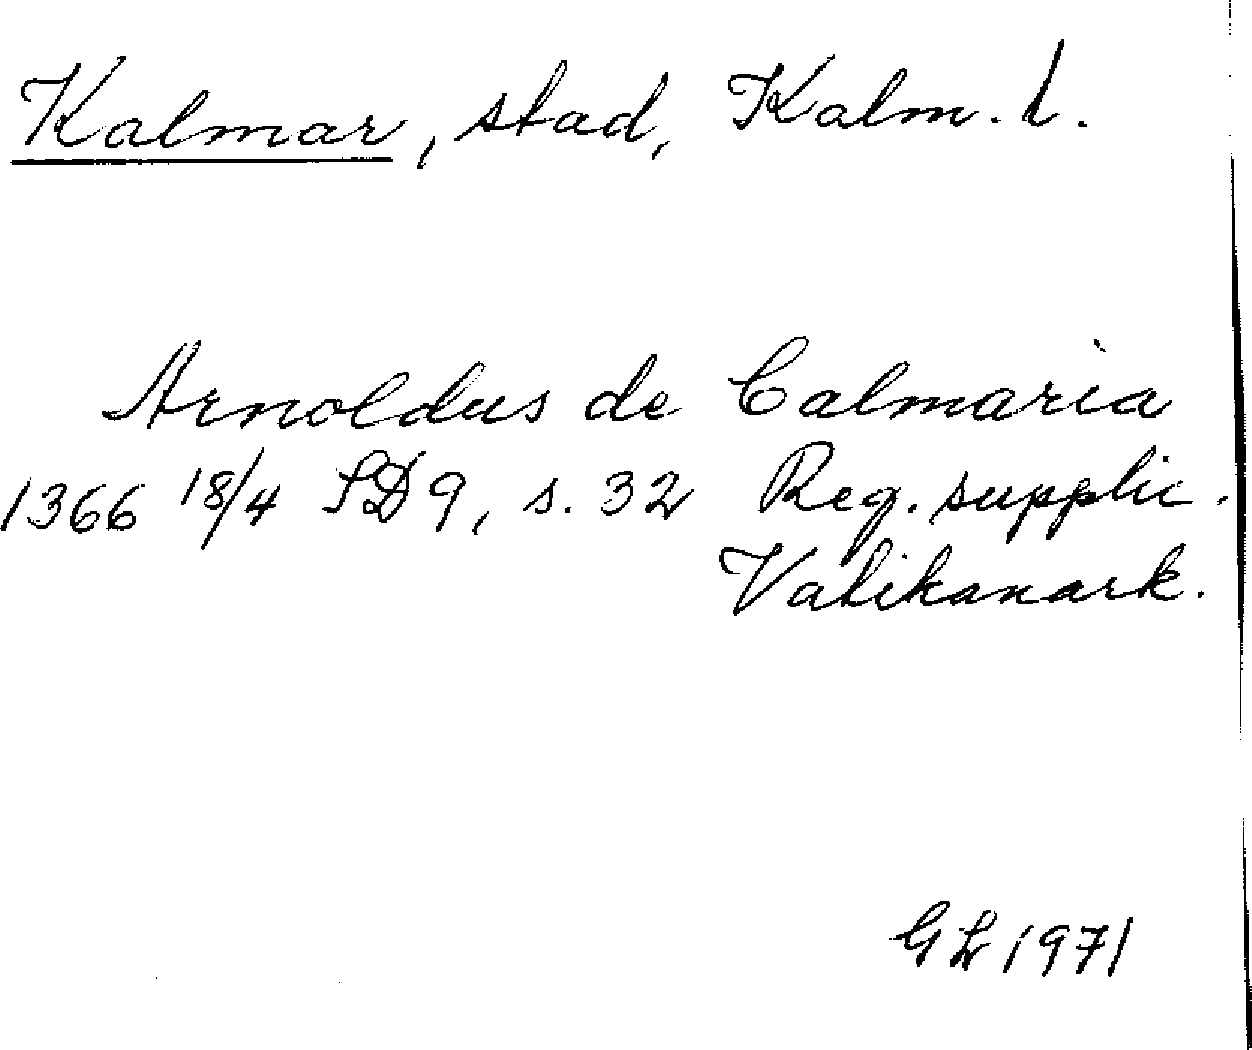 Kalmar, stad, Kalm. l.
Arnoldus de Calmaria
1366 18/4 SD 9, s. 32 Reg. supplic.
Vatikanark.
GL 1971